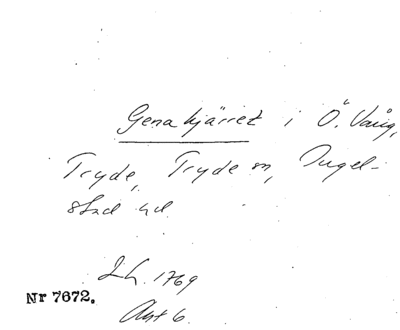 Genakjärret i Ö. Vång,
Tryde, Tryde sn, Ingel-
stad hd
Lh. 1769
Nr 7672.
Akt 6